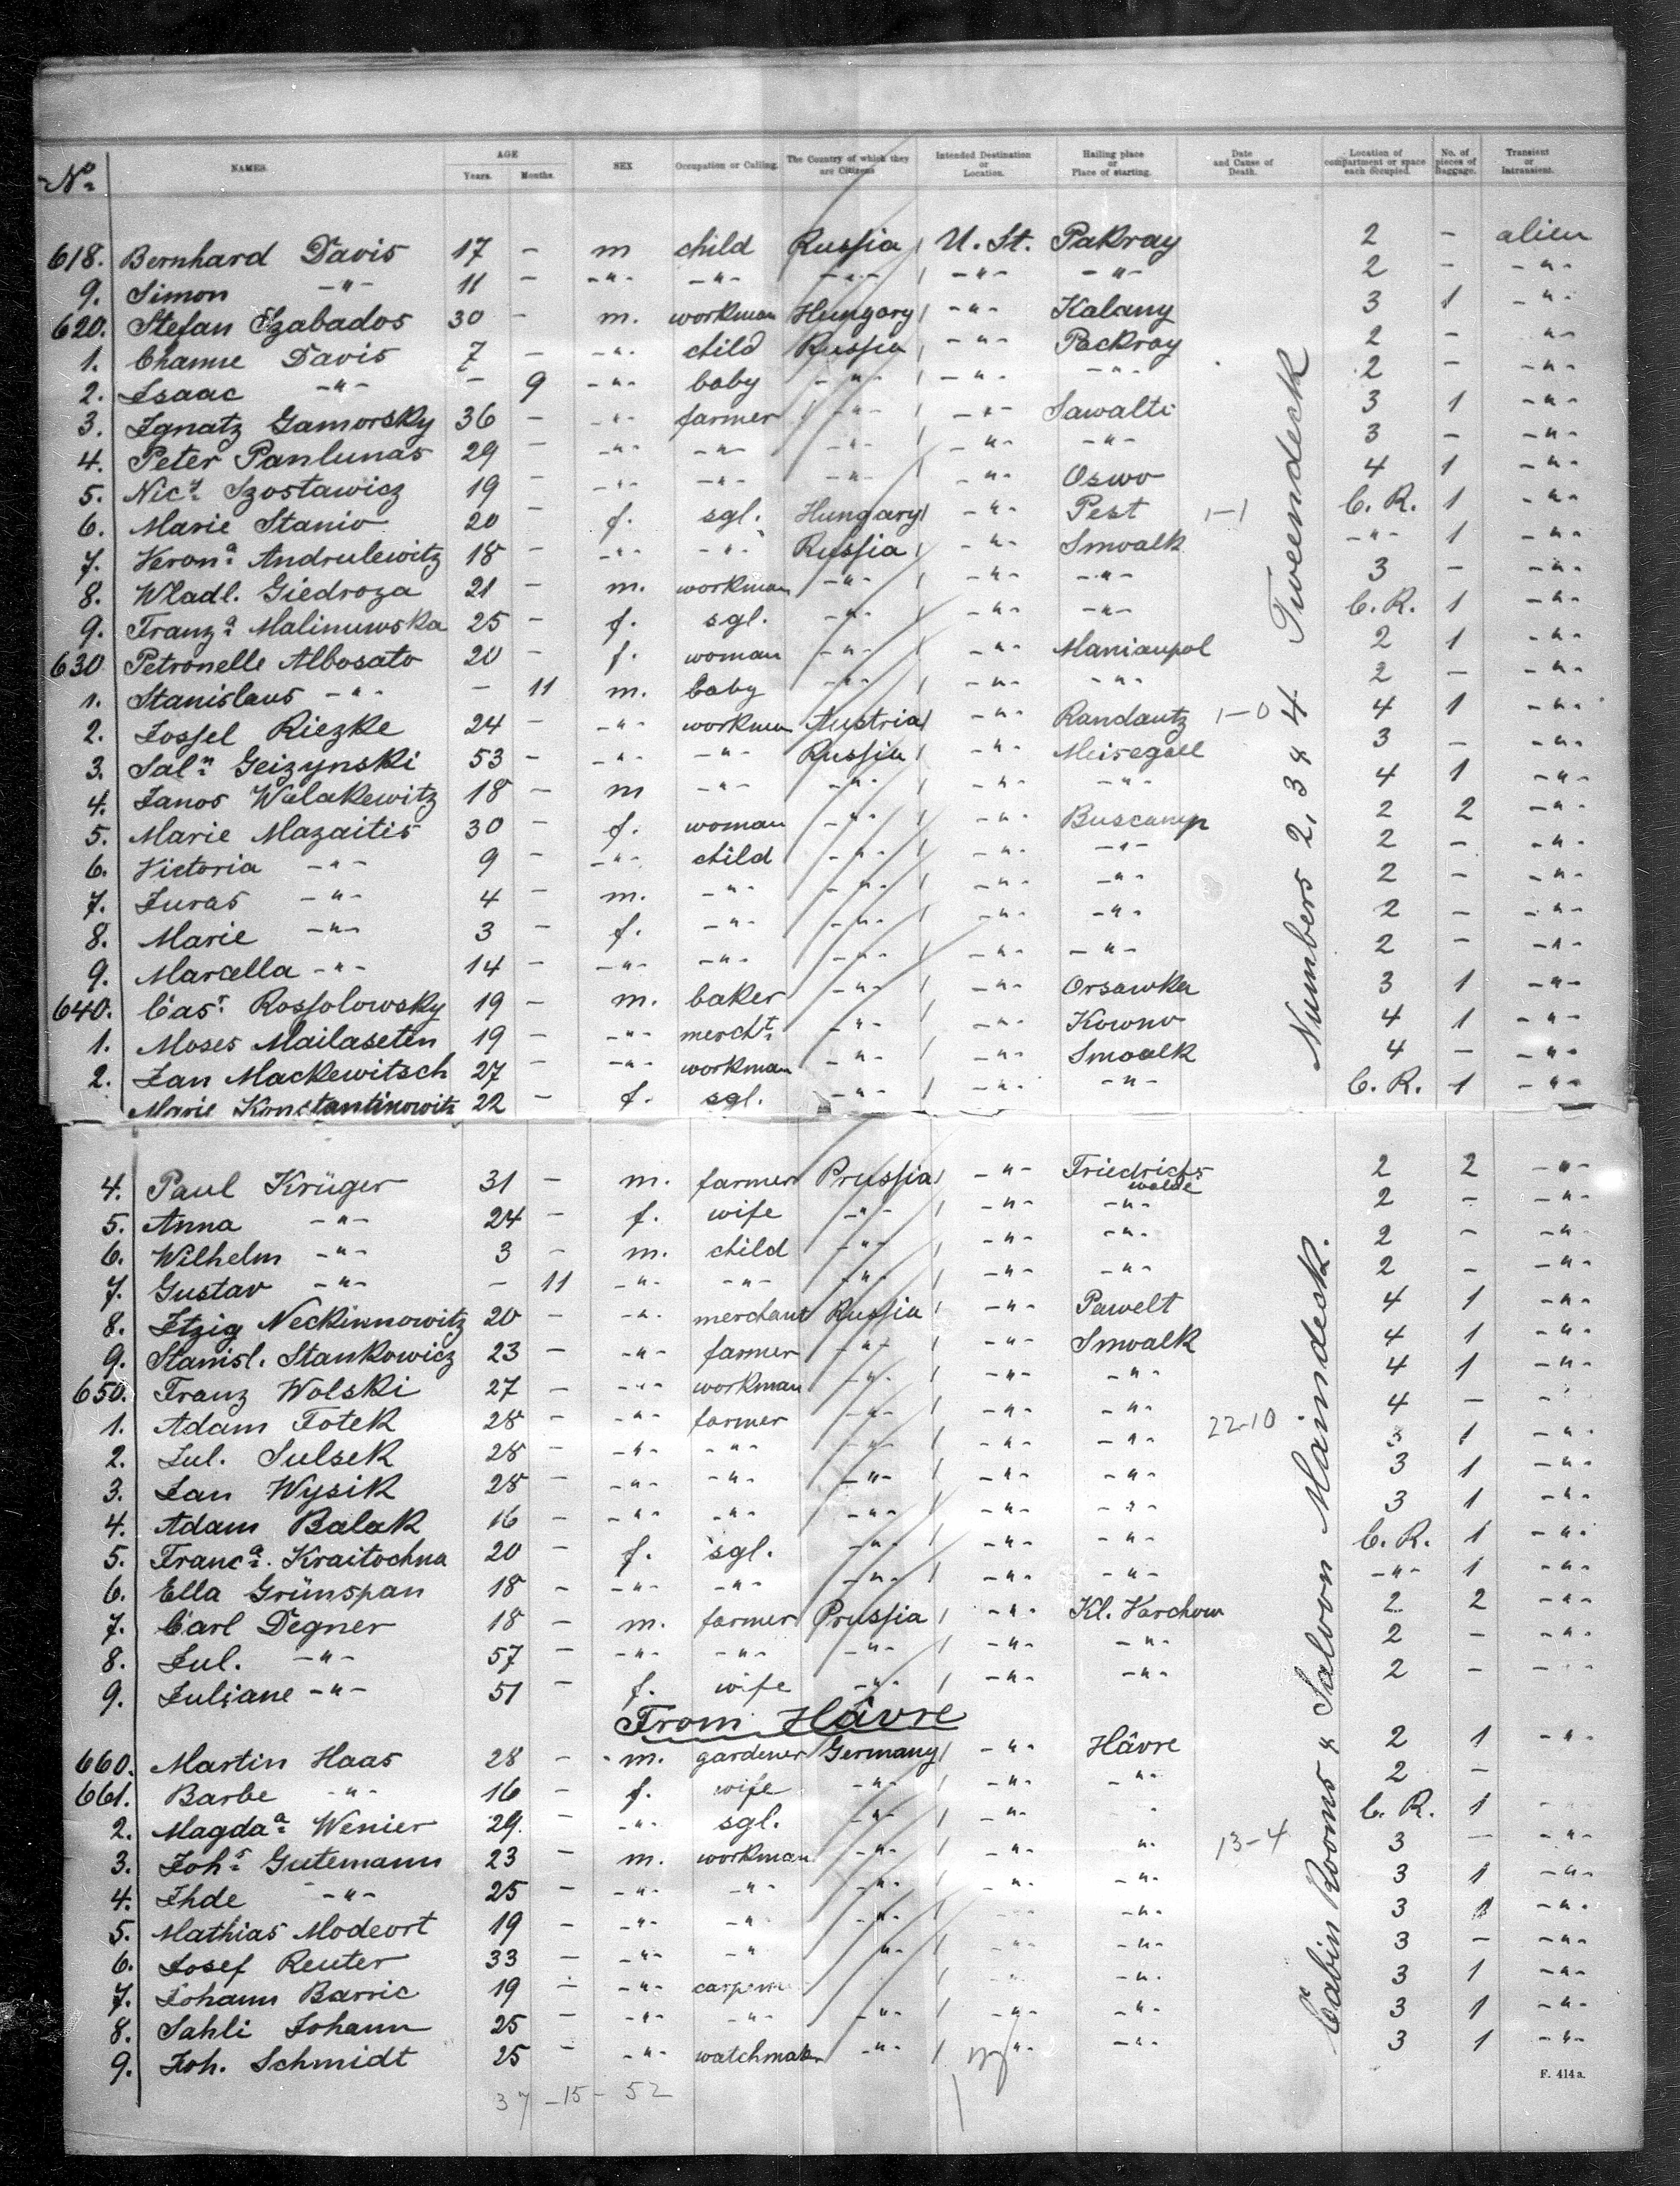 No. NAMES. AGE Years. Months. SEX Occupation or Calling. The Country of which they are Citizens Intended Destination or Location. Hailing place or Place of starting. Date and Cause of Death. Location of compartment or space each occupied. No. of pieces of Baggage. Transient or Intransient.
618. Bernhard Davis 17 - m child Russia U. St. Pakray 2 - alien
9. Simon -"- 11 - -"- -"- -"- -"- -"- 2 - -"-
620. Stefan Szabados 30 - m. workman Hungary -"- Kalany 3 1 -"-
1. Channe Davis 7 - -"- child Russia -"- Packray 2 - -"-
2. Isaac -"- - 9 -"- baby -"- -"- -"- 2 - -"-
3. Ignatz Gamorsky 36 - -"- farmer -"- -"- Sawalti 3 1 -"-
4. Peter Panlunas 29 - -"- -"- -"- -"- -"- 3 - -"-
5. Nics. Szostawicz 19 - -"- -"- -"- -"- Oswo 4 1 -"-
6. Marie Stanio 20 - f. sgl. Hungary -"- Pest 1-1 C. R. 1 -"-
7. Verona. Andrulewitz 18 - -"- -"- Russia -"- Smoalk -"- 1 -"-
8. Wladl. Giedroza 21 - m. workman -"- -"- -"- 3 - -"-
9. Franza. Malinuwska 25 - f. sgl. -"- -"- -"- C. R. 1 -"-
630 Petronelle Albosato 20 - f. woman -"- -"- Maniaupol 2 1 -"-
1. Stanislaus -"- - 11 m. baby -"- -"- -"- 2 - -"-
2. Jossel Riezke 24 - -"- workman Austria -"- Randautz 1-0 4 1 -"-
3. Saln. Geizynski 53 - -"- -"- Russia -"- Meisegall 3 - -"-
4. Janos Walakewitz 18 - m -"- -"- -"- -"- 4 1 -"-
5. Marie Mazaitis 30 - f. woman -"- -"- Buscamp 2 2 -"-
6. Victoria -"- 9 - -"- child -"- -"- -"- 2 - -"-
7. Juras -"- 4 - m. -"- -"- -"- -"- 2 - -"-
8. Marie -"- 3 - f. -"- -"- -"- -"- 2 - -"-
9. Marcella -"- 14 - -"- -"- -"- -"- -"- 2 - -"-
640. Casr. Rossolowsky 19 - m. baker -"- -"- Orsawka 3 1 -"-
1. Moses Mailaseten 19 - -"- mercht. -"- -"- Kowno 4 1 -"-
2. Jan Mackewitsch 27 - -"- workman -"- -"- Smoalk 4 - -"-
Marie Konstantinowitz 22 - f. sgl. -"- -"- -"- C. R. 1 -"-
Numbers 2, 3 & 4 Tweendeck
4. Paul Krüger 31 - m. farmer Prussia -"- Friedrichswalde 2 2 -"-
5. Anna -"- 24 - f. wife -"- -"- -"- 2 - -"-
6. Wilhelm -"- 3 - m. child -"- -"- -"- 2 - -"-
7. Gustav -"- - 11 -"- -"- -"- -"- -"- 2 - -"-
8. Itzig Neckinnowitz 20 - -"- merchant Russia -"- Pawelt 4 1 -"-
9. Stanisl. Stankowicz 23 - -"- farmer -"- -"- Smoalk 4 1 -"-
650. Franz Wolski 27 - -"- workman -"- -"- -"- 4 1 -"-
1. Adam Totek 28 - -"- farmer -"- -"- -"- 22-10 4 - -"-
2. Jul. Sulsek 28 - -"- -"- -"- -"- -"- 3 1 -"-
3. Jan Wysik 28 - -"- -"- -"- -"- -"- 3 1 -"-
4. Adam Balak 16 - -"- -"- -"- -"- -"- 3 1 -"-
5. Franca. Kraitochna 20 - f. sgl. -"- -"- -"- C. R. 1 -"-
6. Ella Grünspan 18 - -"- -"- -"- -"- -"- -"- 1 -"-
7. Carl Degner 18 - m. farmer Prussia -"- Kl. Varchow 2 2 -"-
8. Jul. -"- 57 - -"- -"- -"- -"- -"- 2 - -"-
9. Juliane -"- 51 - f. wife -"- -"- -"- 2 - -"-
From Hâvre
660. Martin Haas 28 - m. gardener Germany -"- Hâvre 2 1 -"-
661. Barbe -"- 16 - f. wife -"- -"- -"- 2 -
2. Magdaa. Wenier 29. - -"- sgl. -"- -"- " C. R. 1 -
3. Johs. Gutemann 23 - m. workman -"- -"- " 13-4 3 - -"-
4. Ihde -"- 25 - -"- -"- -"- -"- -"- 3 1 -"-
5. Mathias Modeort 19 - -"- -"- -"- -"- -"- 3 1 -"-
6. Josef Reuter 33 - -"- -"- -"- -"- -"- 3 - -"-
7. Johann Barric 19 - -"- -"- -"- 3 1 -"-
8. Sahli Johann 25 - -"- -"- -"- -"- -"- 3 1 -"-
9. Joh. Schmidt 25 - -"- watchmaker -"- -"- -"- 3 1 -"-
Cabin Rooms & Saloon Maindeck.
37 - 15 - 52
F. 414a.